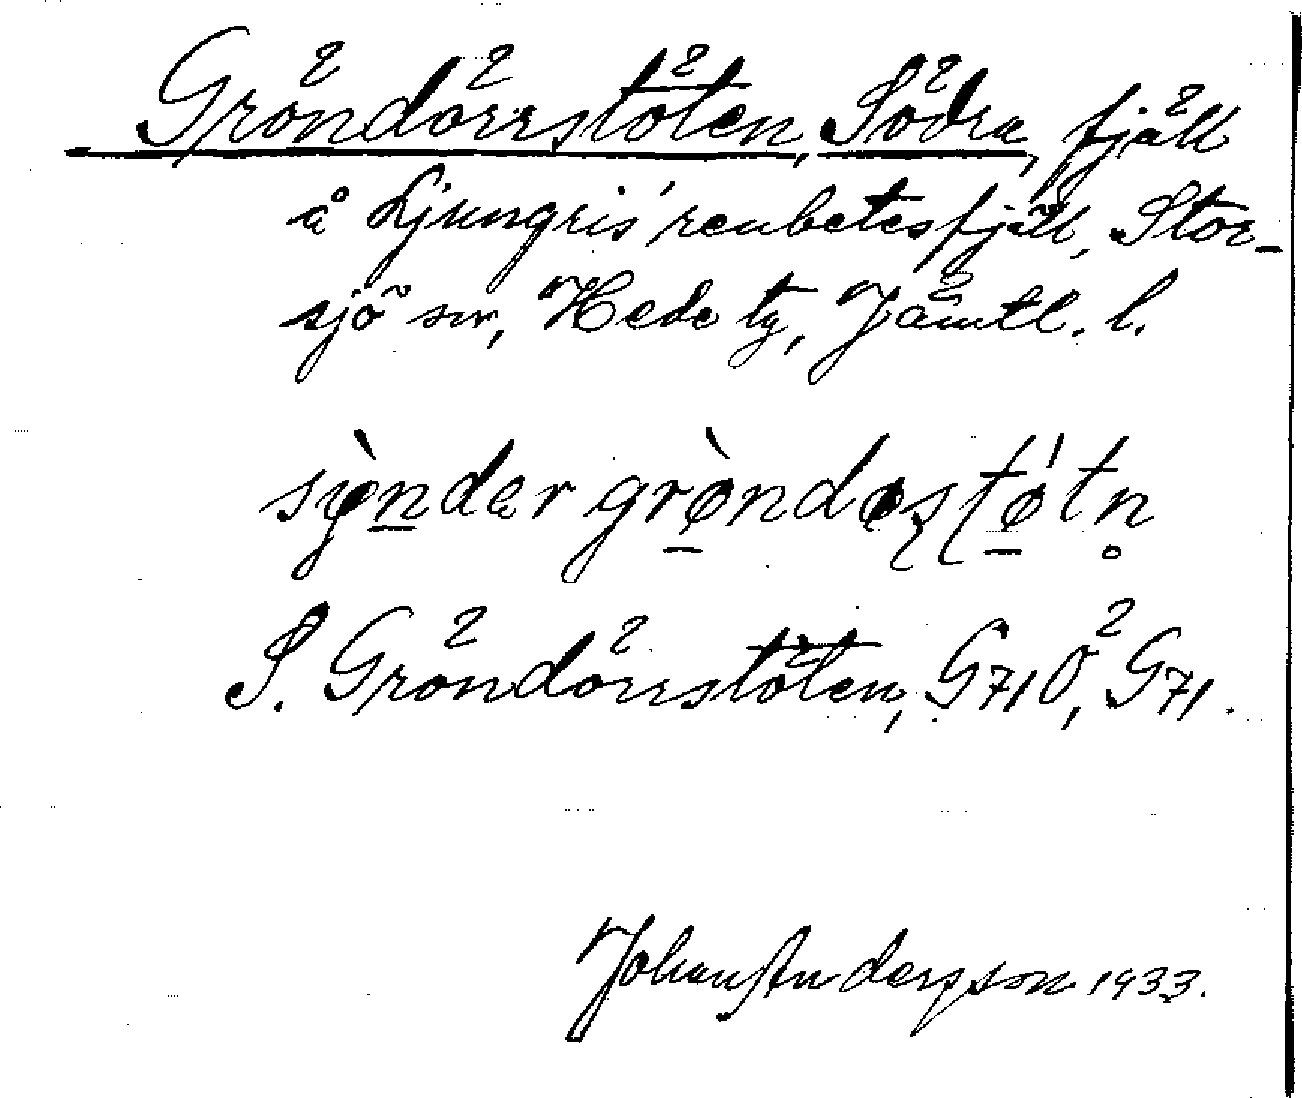 Gröndörrstöten, Södra, fjäll
å Ljungris' renbetesfjäll, Stor-
sjö sn, Hede tg, Jämtl. l.
S. Gröndörrstöten, G710, G71.
Johan Andersson 1933.